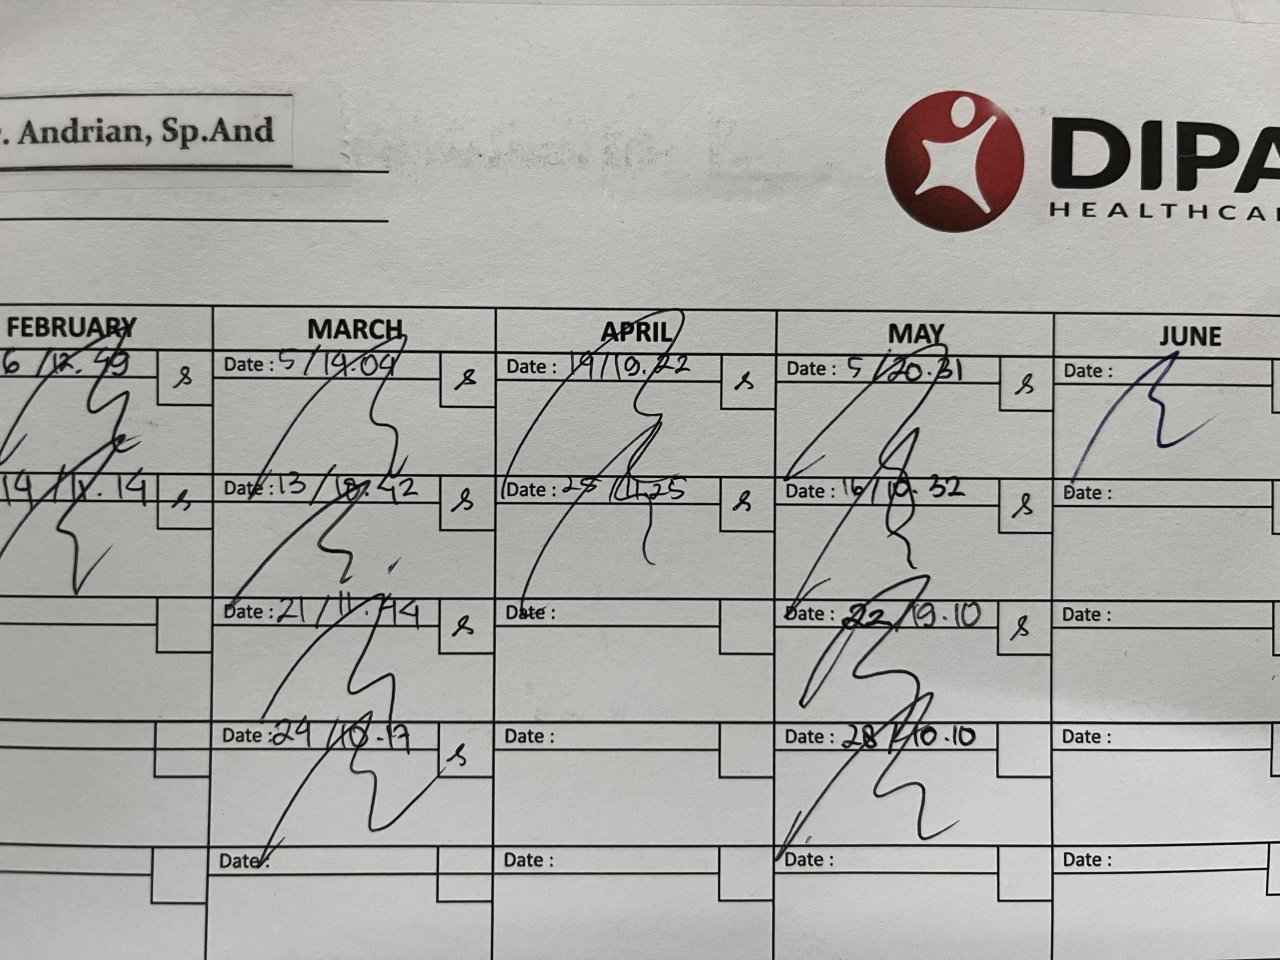 . Andrian, Sp.And
DIPA
HEALTHCA
FEBRUARY MARCH APRIL MAY JUNE
6 /12.49 Date : 5 /14.04 Date : 19/19.22 Date : 5 /20.31 Date :
14 /11.14 Date : 13 /18.42 Date : 28 /11.25 Date : 16/19.32 Date :
Date : 21 /11.44 Date : Date : 22 /19.10 Date :
Date : 24 /10.17 Date : Date : 28 /10.10 Date :
Date : Date : Date : Date :